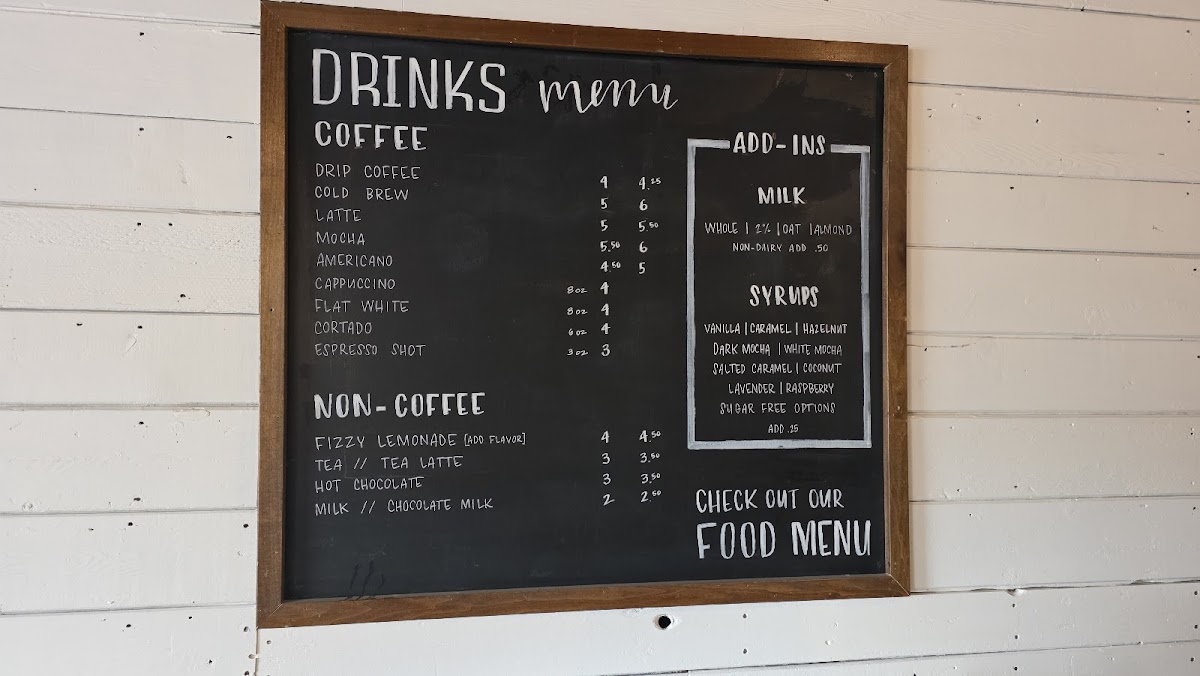 DRINKS menu
COFFEE
DRIP COFFEE 4 4.25
COLD BREW 5 6
LATTE 5 5.50
MOCHA 5.50 6
AMERICANO 4.50 5
CAPPUCCINO 8oz 4
FLAT WHITE 8oz 4
CORTADO 6oz 4
ESPRESSO SHOT 3oz 3
NON-COFFEE
FIZZY LEMONADE [ADD FLAVOR] 4 4.50
TEA // TEA LATTE 3 3.50
HOT CHOCOLATE 3 3.50
MILK // CHOCOLATE MILK 2 2.50
ADD-INS
MILK
WHOLE | 2% | OAT | ALMOND
NON-DAIRY ADD .50
SYRUPS
VANILLA | CARAMEL | HAZELNUT
DARK MOCHA | WHITE MOCHA
SALTED CARAMEL | COCONUT
LAVENDER | RASPBERRY
SUGAR FREE OPTIONS
ADD .25
CHECK OUT OUR
FOOD MENU